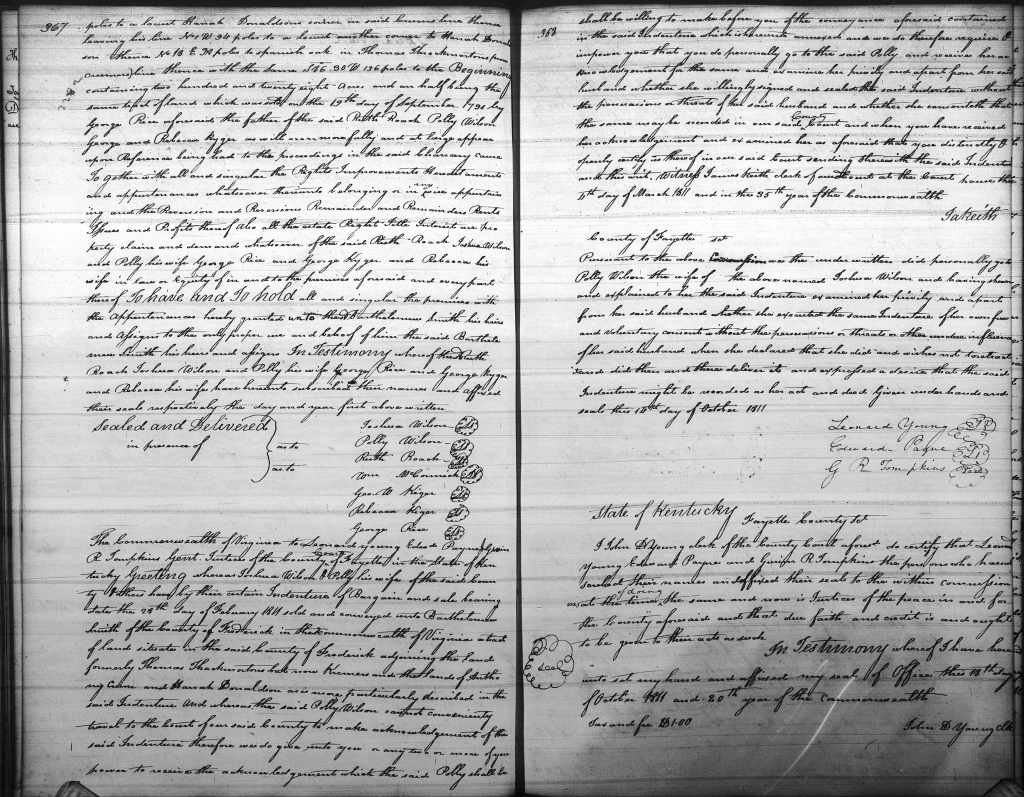 367
poles to a locust Hanah Donaldsons corner in said Crums line thence
leaving his line N 1 W 34 poles to a locust another corner to Hanah Donald
son thence N 16 E 78 poles to spanish oak in Thomas Thackmortons
line thence with the same S 76 30 W 136 poles to the Beginning
containing two hundred and twenty eight Acres and an half being the
same of land which was on the 19th day of September 179 by
George Rice aforesaid the father of the said Ruth Roach Polly Wilson
George and Rebecca Kyger as will more fully and at large appear
upon Reference being had to the proceedings in the said Chancery cause
To gether with all and singular the Rights Improvements Hereditaments
and appurtenances whatsoever thereunto belonging or in any wise appertain
ing and the Reversion and Reversions Remainder and Remainders Rents
Issues and Profits thereof also all the estate Right Title Interest use pro
perty claim and demand whatsoever of the said Ruth Roach Joshua Wilson
and Polly his wife George Rice and George Kyger and Rebecca his
wife in law or Equity of in and to the premises aforesaid and every part
thereof To have and To hold all and singular the premises with
the Appurtenances hereby granted unto the sd Bartholomew Smith his heirs
and Assigns to the only proper use and behoof of him the said Bartholo
mew Smith his heirs and assigns In Testimony whereof the sd Ruth
Roach Joshua Wilson and Polly his wife George Rice and George Kyger
and Rebecca his wife have hereunto subscribed their names and affixed
their seals respectively the day and year first above written
Sealed and Delivered
in presence of
as to
as to
Joshua Wilson
Polly Wilson
Ruth Roach
Wm McCormick
Geo. W Kiger
Rebecca Kiger
George Rice
The Commonwealth of Virginia to Leonard young Edwd Payne
R Tompkins Gent. Justices of the County of Fayette in the State of Ken
tucky Greeting whereas Joshua Wilson & Polly his wife of the said Coun
ty & others have by their certain Indenture of Bargain and sale bearing
date the 28th day of February 1811 sold and conveyed unto Bartholomew
Smith of the County of Frederick in the Commonwealth of Virginia a tract
of land situate in the said County of Frederick adjoining the Land
formerly Thomas Thackmortons but now and the lands of Antho
ny Crum and Hanah Donaldson as is more particularly described in the
said Indenture And whereas the said Polly Wilson cannot conveniently
travel to the Court of our said County to make acknowledgement of the
said Indenture therefore we do give unto you or any two or more of you
power to receive the acknowledgement which the said Polly shall be
368
shall be willing to make before you of the conveyance aforesaid contained
in the said Indenture which is hereunto annexed and we do therefore require &
impower you that you do personally go to the said Polly and receive her ac
knowledgement for the same and examine her privily and apart from her said
husband whether she willingly signed and sealed the said Indenture without
the persuasions or threats of her said husband and whether she consenteth that
the same may be recorded in our said County Court and when you have received
her acknowledgement and examined her as aforesaid that you distinctly &
openly certify us thereof in our said Court sending therewith the said Indenture
and this writ, Witness James Keith clerk of our said Court at the Court house the
6th day of March 1811 and in the 35th year of the Commonwealth
Ja Keith
County of Fayette sct
Pursuant to the above Commission we the under written did personally go to
Polly Wilson the wife of the above named Joshua Wilson and having shewn
and explained to her the said Indenture examined her privily and apart
from her said husband whether she executed the same Indenture of her own free
and Voluntary consent without the persuasions or threats or other undue influence
of her said husband when she declared that she did and wishes not to retract
it and did then and there deliver it and expressed a desire that the said
Indenture might be recorded as her act and deed Given under hands and
seals this 18th day of October 1811
Leonard Young
Edward Payne
G R Tompkins
State of Kentucky
Fayette County Sct
I John D Young clerk of the County Court aforesd do certify that Leonard
Young Edward Payne and R Tompkins the persons who have
subscribed their names and affixed their seals to the within commission
was at the time of doing the same and now is Justices of the peace in and for
the County aforesaid and that due faith and credit is and ought
to be given to their acts as such
In Testimony whereof I have here
unto set my hand and affixed my seal of Office this 18th day
of October 1811 and 20th year of the Commonwealth
Tax and fee $1.00
John D Young Clk
Seal